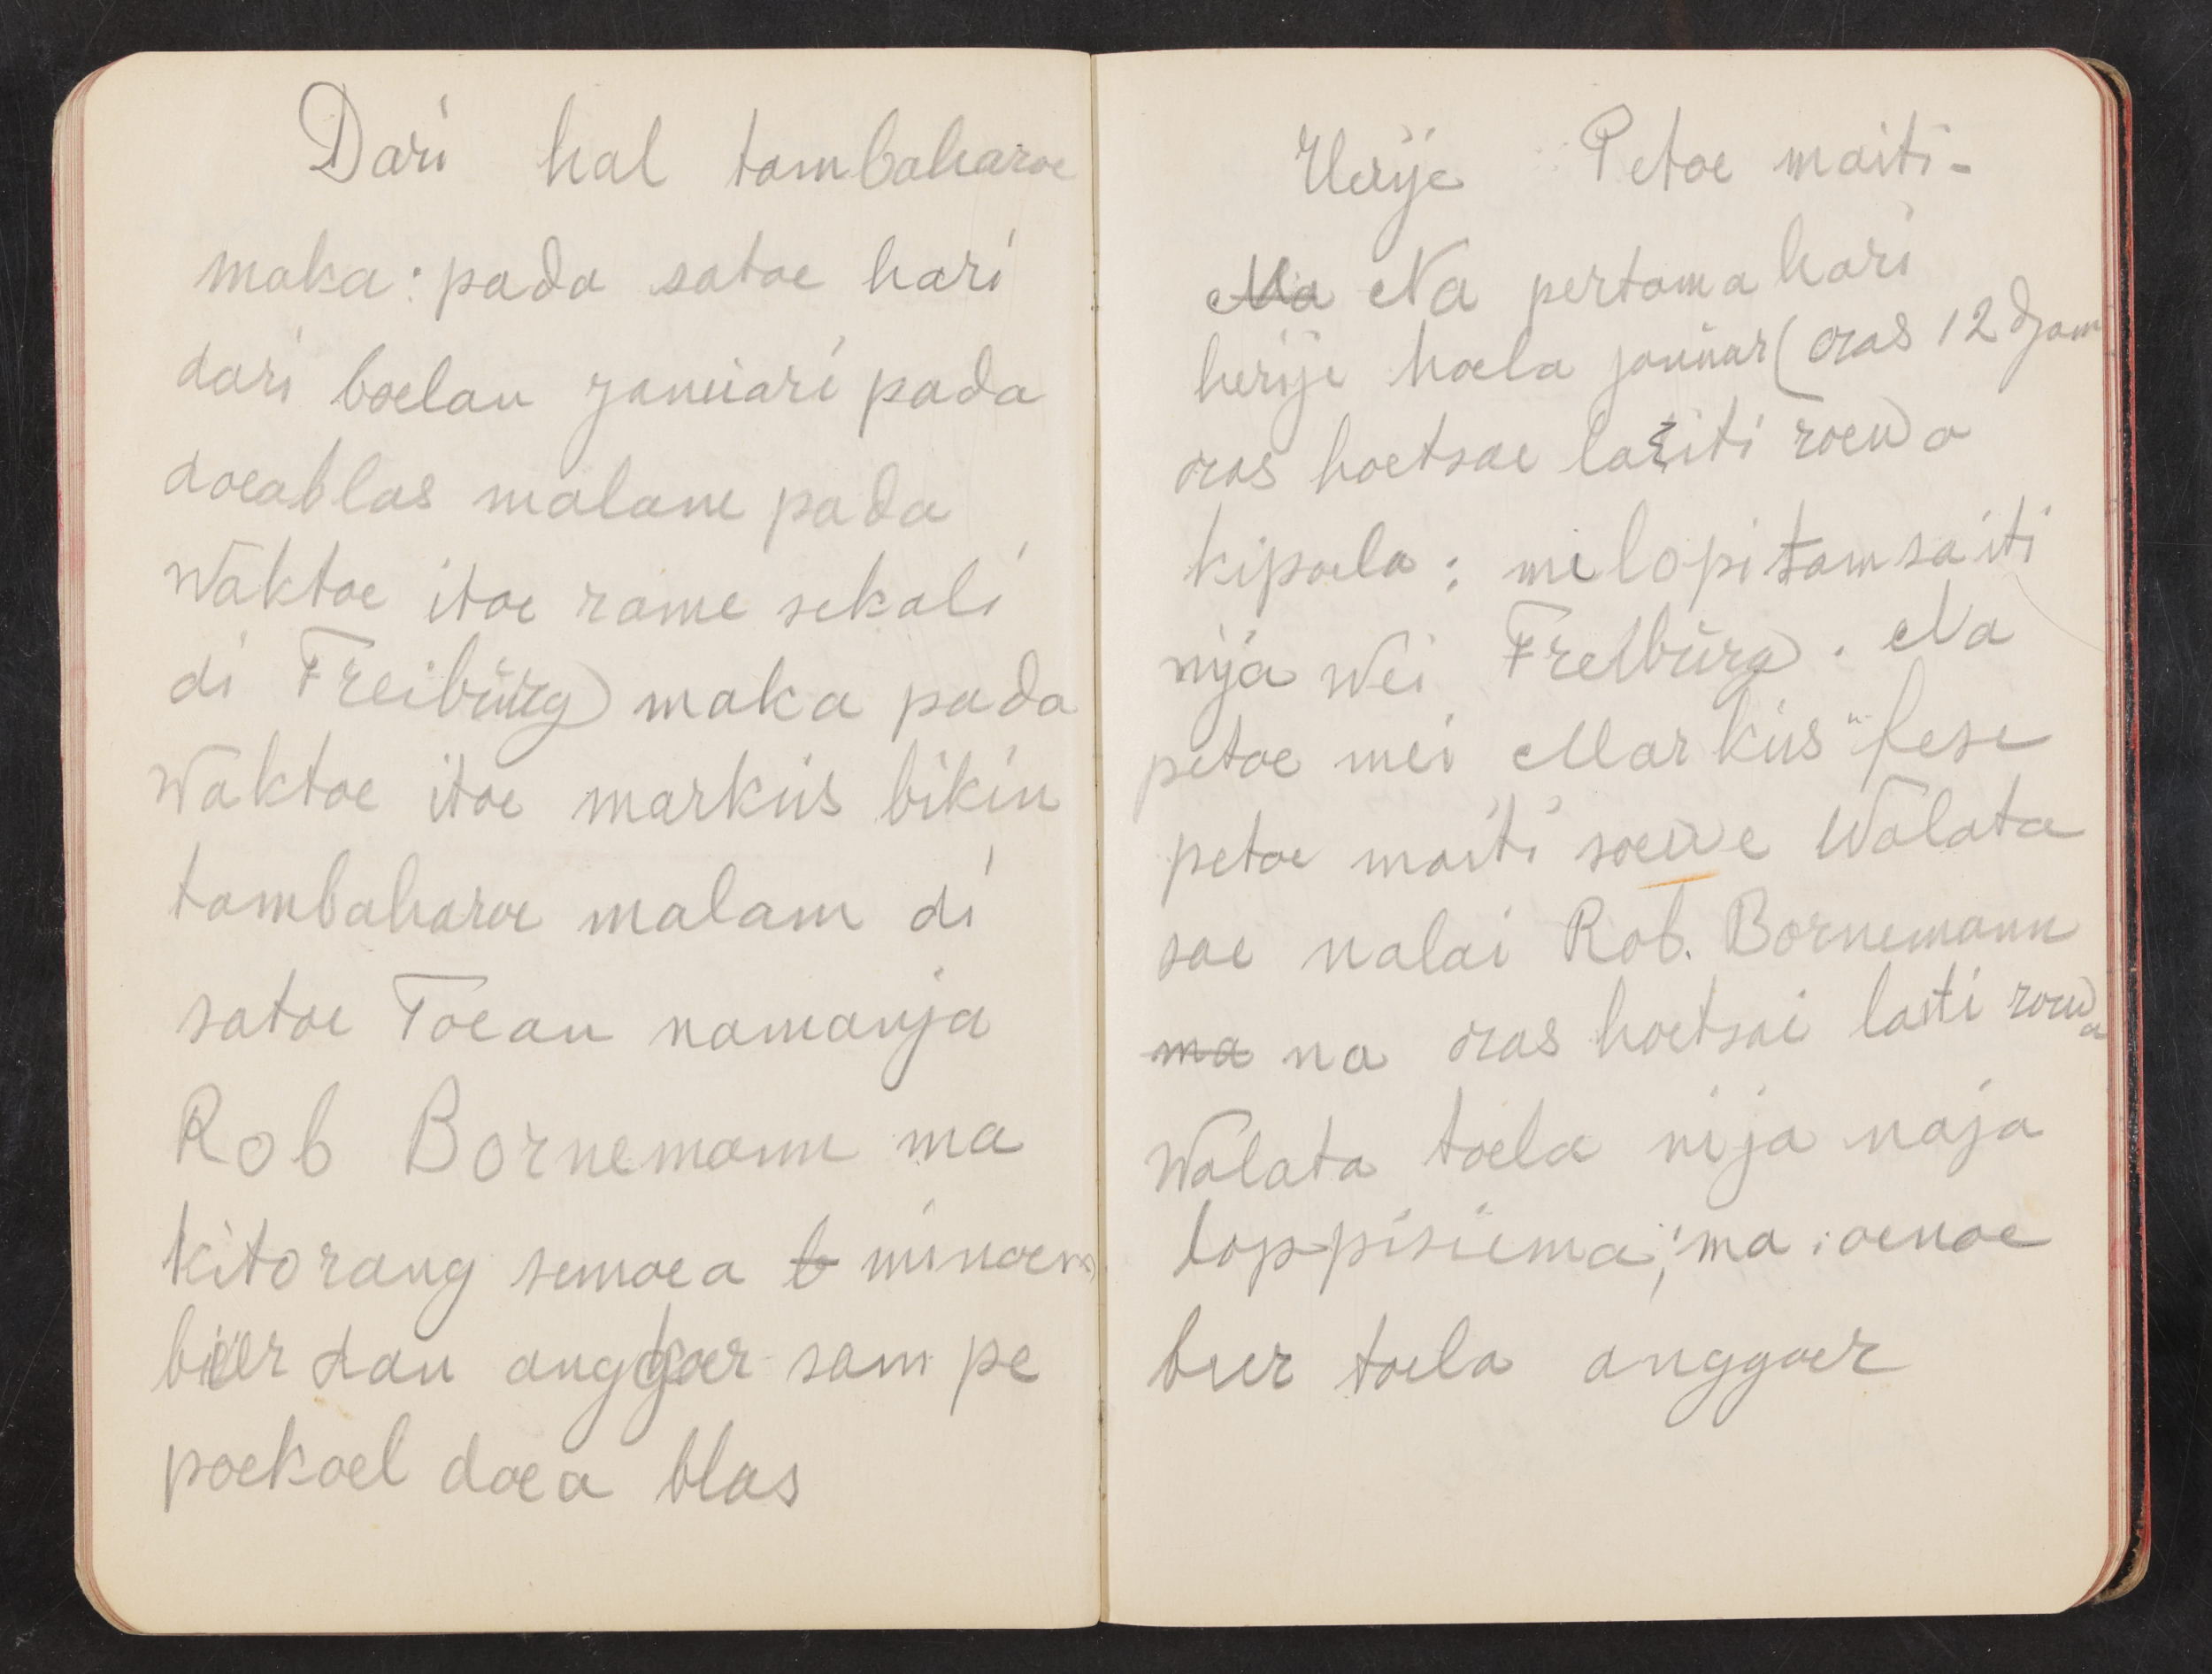 Dari hal tambaharoe
maka: pada satoe hari
dari boelan januari pada
doeablas malam pada
waktoe itoe rame sekali
di Freibürg) maka pada
waktoe itoe markus bikin
tambaharoe malam di
satoe Toean namanja
Rob Bornemann ma
kitorang semoea b minoem
bier dan anggoer sampe
poekoel doea blas
Herije Petoe maiti-
Ma Na pertama hari
herije hoela januar (oras 12 djam
oras hoetsae lasiti roewa
kipoela: melopi tamsaiti
nija wei Freiburg. Na
petoe mei Markus
petoe maiti soewe Walata
sae nalai Rob. Bornemann
ma na oras hoetsai lasiti roewa
Walata toela nija naja
loppisiema; ma: oenoe
bier toela anggoer